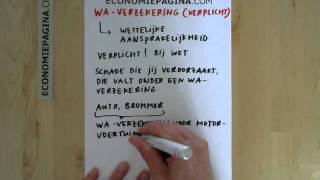 ECONOMIEPAGINA.COM
WA-VERZEKERING (VERPLICHT)
↳ WETTELIJKE
AANSPRAKELIJKHEID
VERPLICHT! BIJ WET
SCHADE DIE JIJ VEROORZAAKT,
DIE VALT ONDER EEN WA-
VERZEKERING
AUTO, BROMMER
WA-VERZEKERING VOOR MOTOR-
VOERTUI
ECONOMIEPAGINA.COM